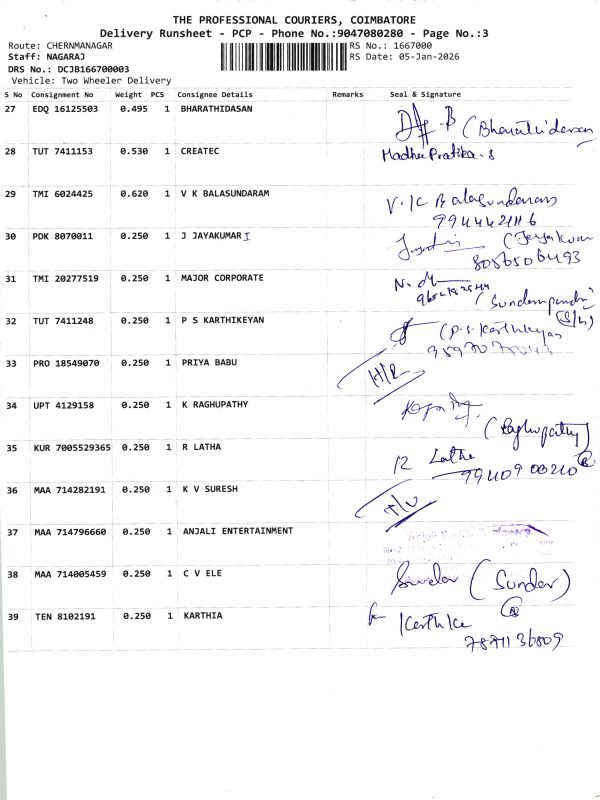 THE PROFESSIONAL COURIERS, COIMBATORE
Delivery Runsheet - PCP - Phone No.:9047080280 - Page No.:3
Route: CHERNMANAGAR RS No.: 1667000
Staff: NAGARAJ RS Date: 05-Jan-2026
DRS No.: DCJB166700003
Vehicle: Two Wheeler Delivery
S No Consignment No Weight PCS Consignee Details Remarks Seal & Signature
27 EDQ 16125503 0.495 1 BHARATHIDASAN
(Bharathidasan
28 TUT 7411153 0.530 1 CREATEC Madhu Pratika. S
29 TMI 6024425 0.620 1 V K BALASUNDARAM V. K Balasundaram
30 PDK 8070011 0.250 1 J JAYAKUMAR I (Jayakum
8056506493
31 TMI 20277519 0.250 1 MAJOR CORPORATE
(Sundarapandi
(S/w)
32 TUT 7411248 0.250 1 P S KARTHIKEYAN (P.S. Karthikeyan
33 PRO 18549070 0.250 1 PRIYA BABU
34 UPT 4129158 0.250 1 K RAGHUPATHY
(Raghupathy)
35 KUR 7005529365 0.250 1 R LATHA R Latha
9940900210
36 MAA 714282191 0.250 1 K V SURESH
37 MAA 714796660 0.250 1 ANJALI ENTERTAINMENT
38 MAA 714005459 0.250 1 C V ELE Sundar (Sundar)
39 TEN 8102191 0.250 1 KARTHIA Karthika
7871136809